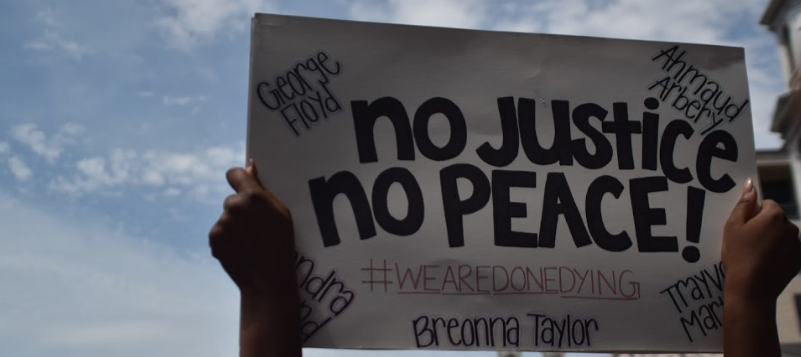 George
Floyd
Ahmaud
Arbery
no Justice
no PEACE!
#WEAREDONEDYING
Breonna Taylor